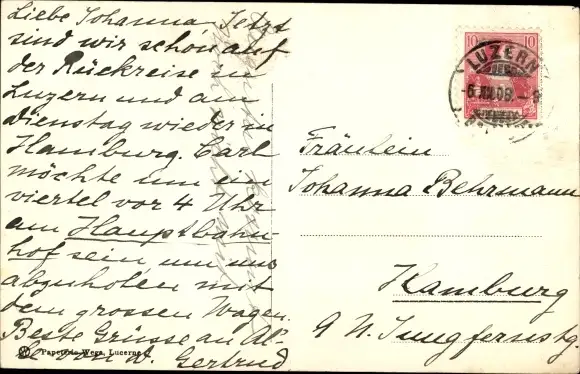 Liebe Johanna Jetzt
sind wir schon auf
der Rückreise in
Luzern und am
Dienstag wieder in
Hamburg. Carl
möchte um ein
viertel vor 4 Uhr
am Hauptbahn-
hof sein, um uns
abzuholen mit
dem grossen Wagen.
Beste Grüsse an Al-
le von D. Gertrud
Papeterie Wega, Lucerne
10 10
LUZERN
Fräulein
Johanna Behrmann
Hamburg
9 N. Jungfernstg.